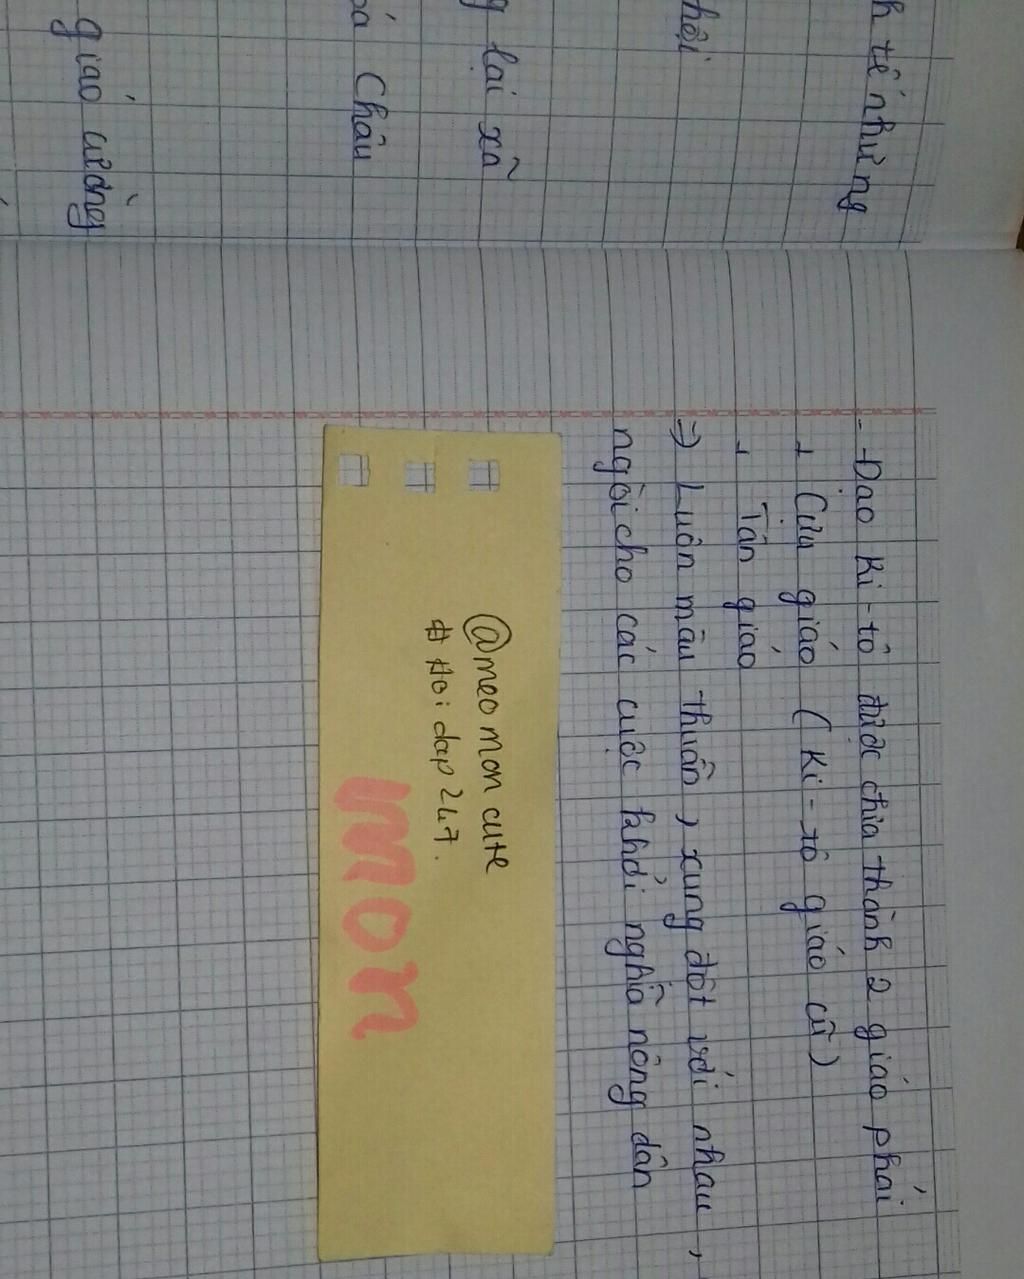 h tế nhưng
hội
g lại xã
Châu
giáo đường
- Đạo Ki-tô được chia thành 2 giáo phái
+ Cựu giáo (Ki-tô giáo cũ)
+ Tân giáo
=> Luôn mâu thuẫn, xung đột với nhau,
ngòi cho các cuộc khởi nghĩa nông dân
@meo mon cute
# Hoi dap 247.
mon